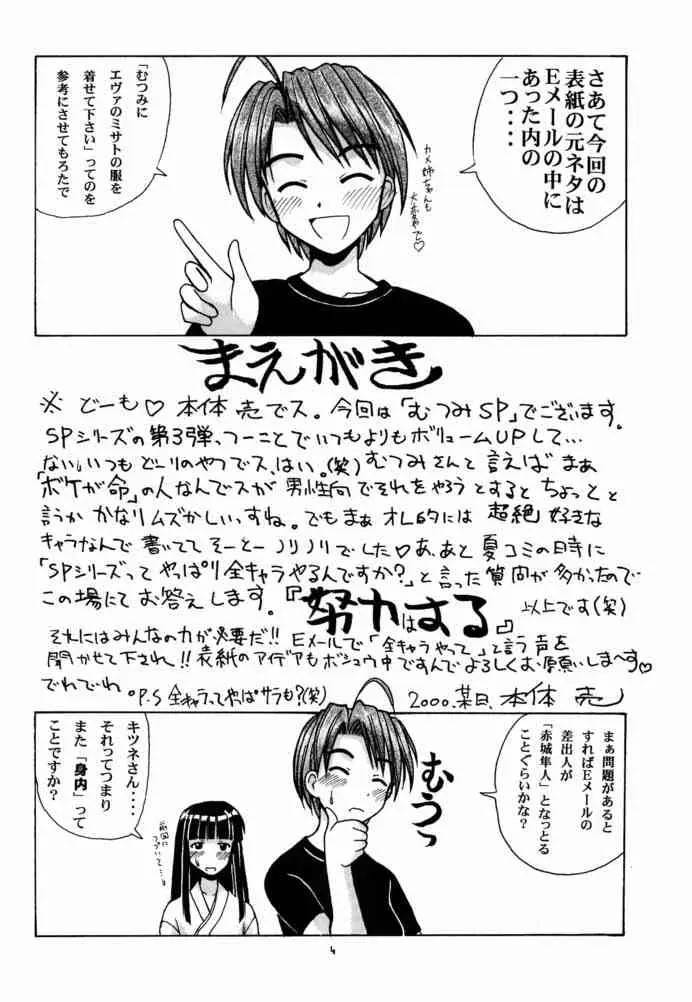 さあて今回の
表紙の元ネタは
Eメールの中に
あった内の
一つ・・・
カメ姉ちゃんも
大変やで♡
「むつみに
エヴァのミサトの服を
着せて下さい」ってのを
参考にさせてもろたで
まえがき
※どーも♡本体 売でス。今回は「むつみSP」でございます。
SPシリーズの第3弾、つーことでいつもよりもボリュームUPして…
ない。いつもどーりのやつでス、はい。(笑)むつみさんと言えばまあ
「ボケが命」の人なんでスが男性向でそれをやろうとするとちょっとと
言うかかなりムズかしいっすね。でもまぁオレ的には超絶好きな
キャラなんで書いててそーとーノリノリでした♡あ、あと夏コミの日時に
「SPシリーズってやっぱり全キャラやるんですか?」と言った質問が多かったので
この場にてお答えします。『努力はする』以上です(笑)
それにはみんなの力が必要だ!!Eメールで「全キャラやって」と言う声を
聞かせて下され!!表紙のアイデアもボシュウ中ですんでよろしくお願いしま〜す♡
でわでわ。P.S 全キャラってやっぱサラも?(笑) 2000.某日、本体 売
まぁ問題があると
すればEメールの
差出人が
「赤城隼人」となっとる
ことぐらいかな?
むうっ
キツネさん・・・・
それってつまり
また「身内」って
ことですか?
前回に
つづいて…
4